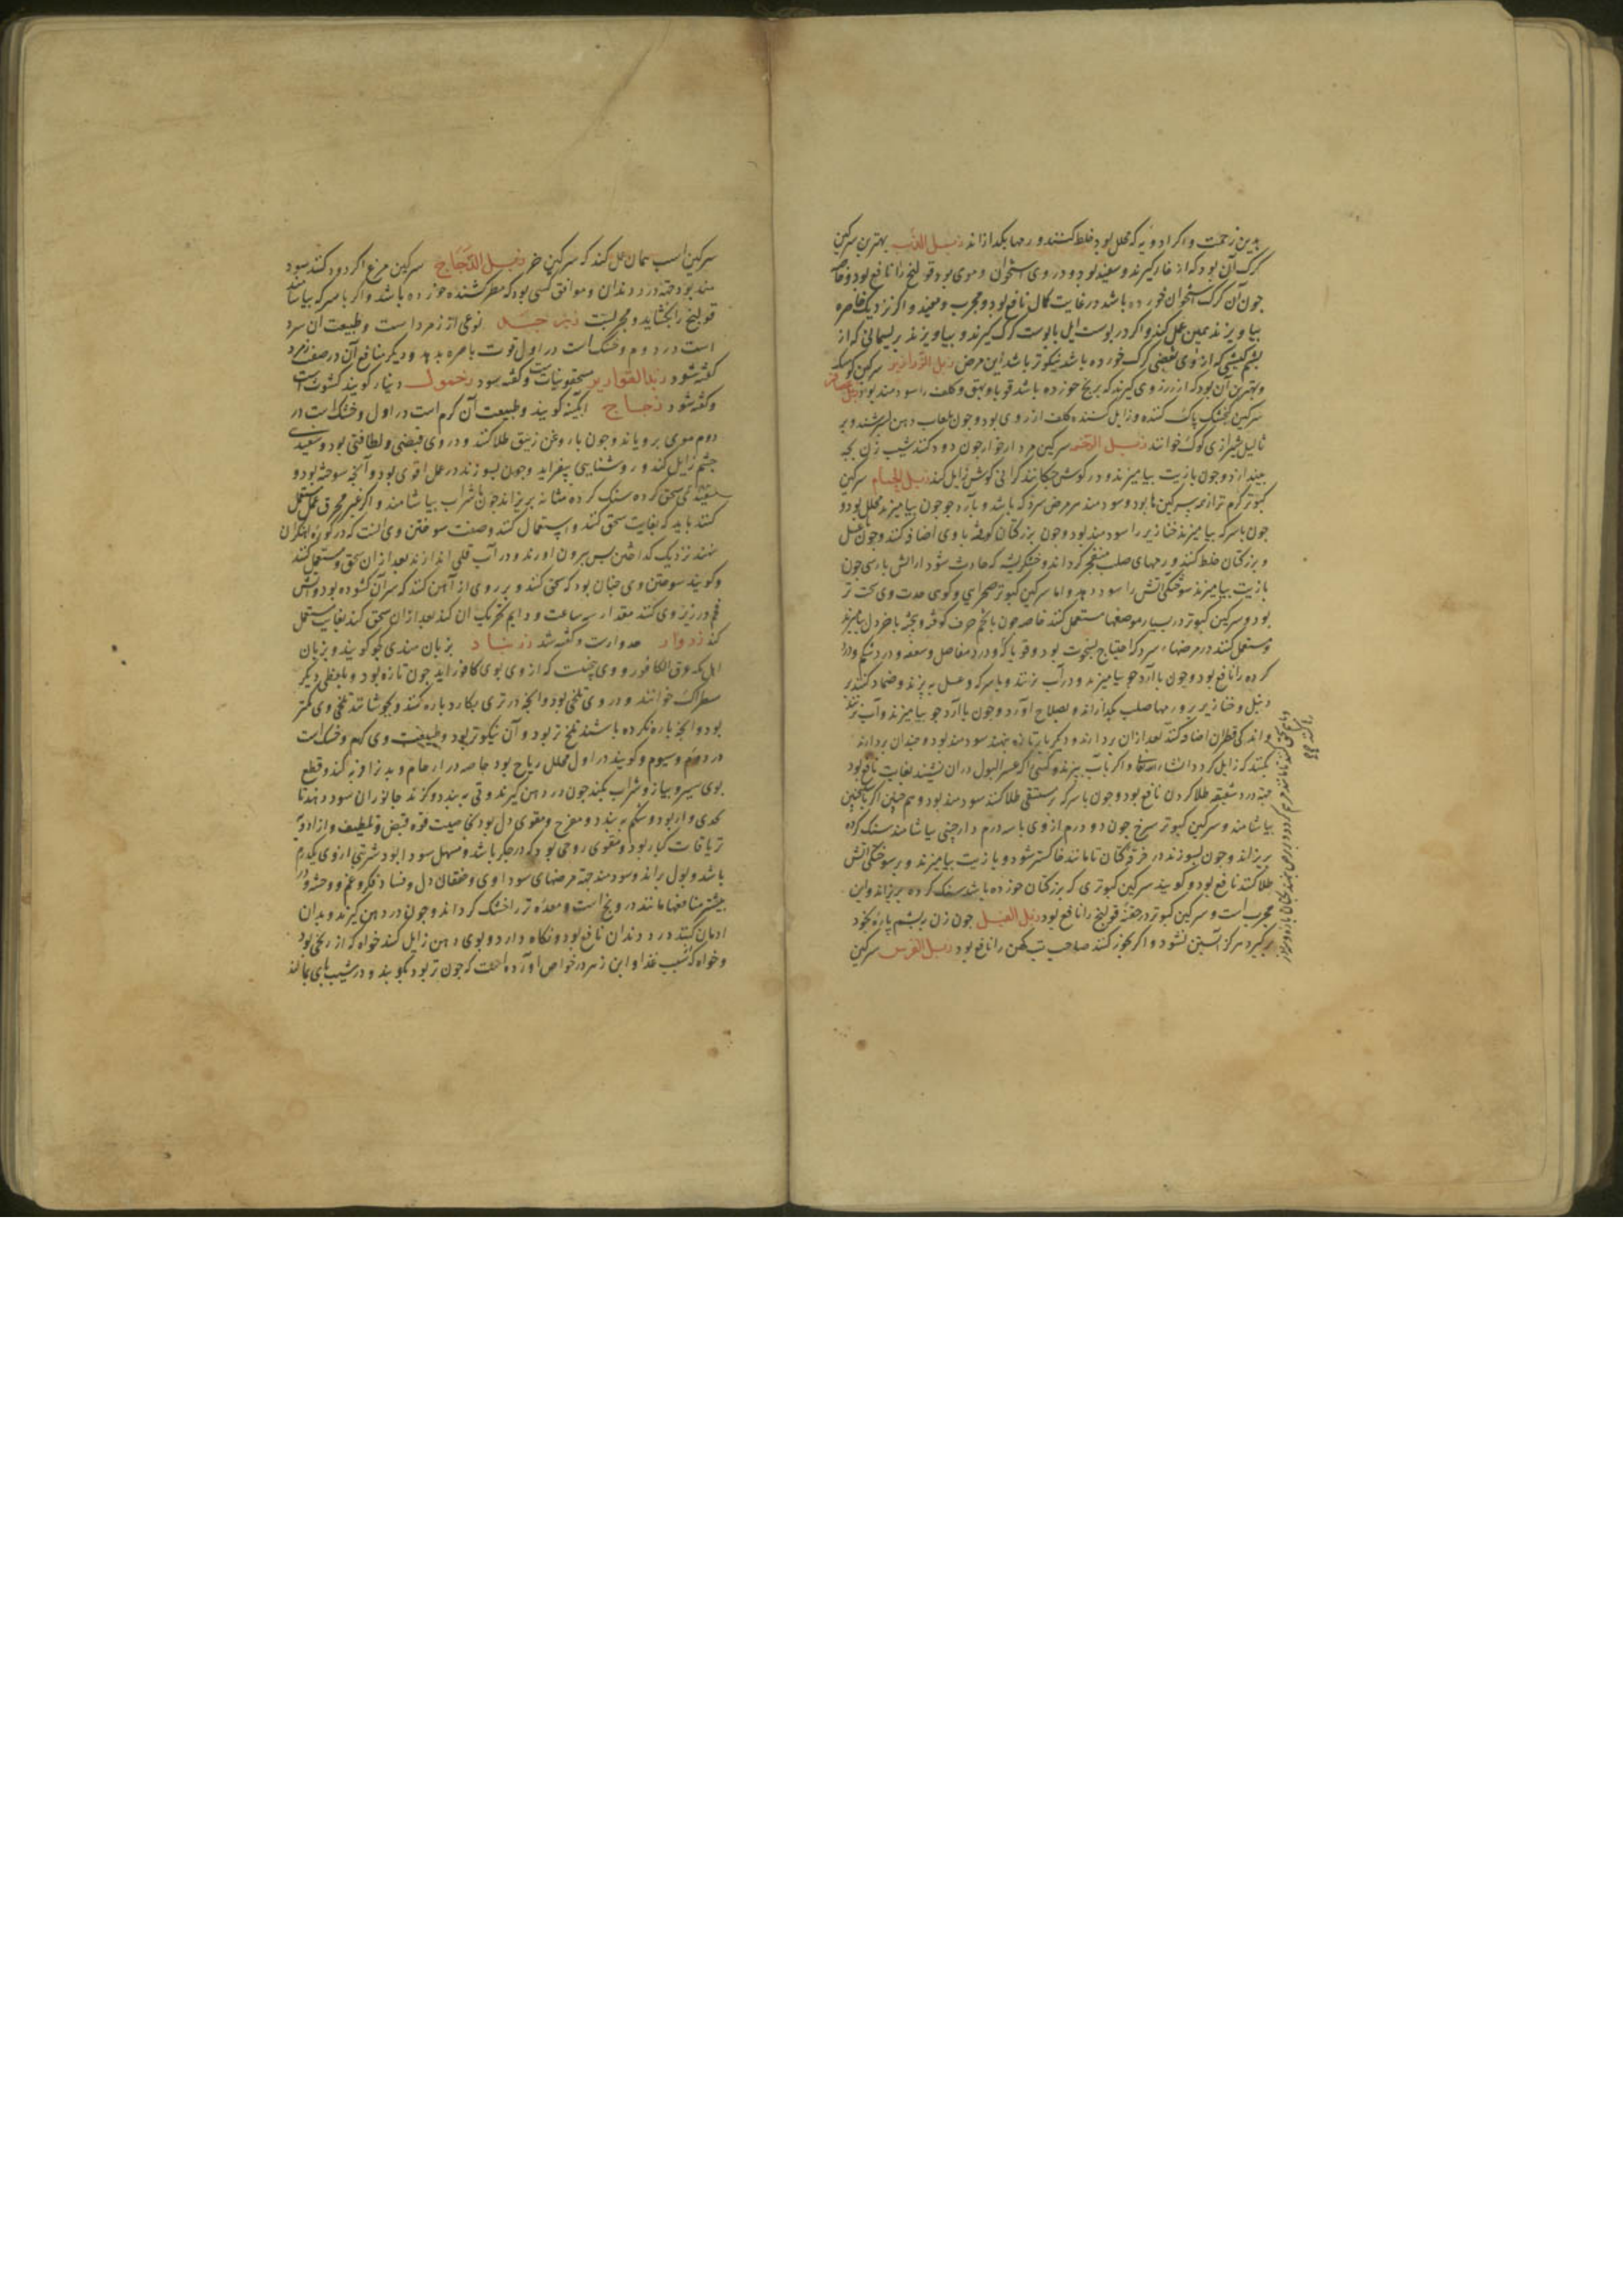 بدین زحمت و اگر ادویه که محلل بود خلط کنند ورمها بکدازاند زبل الذئب بهترین سرکین
کرک آن بود که از خار کیرند و سفید بود و در وی استخوان و موی بود قولنج را نافع بود و خاصه
جون آن کرک استخوان خورده باشد در غایت کمال نافع بود و مجرب و مفید و اکر نزدیک خاصره
بیاویزند همین عمل کند و اکر در پوست ایل یا پوست کرک کیرند و بیاویزند بریسمانی که از
پشم کبشی که از وی بعضی کرک خورده باشد نیکوتر باشد این مرض زبل الزرازیر سرکین
و بهترین آن بود که از زرزوری کیرند که برنج خورده باشد قوبا و بهق و کلف را سودمند بود زبل
سرکین کنجشک پاک کننده و زایل کننده کلف از روی بود و جون بلعاب دهن بسرشند و بر
ثالیل شیرازی کوک خوانند زبل الرخمه سرکین مردارخوار جون دود کنند شیب زن بچه
بیندازد و جون بازیت بیامیزند و در کوش جکانند کرانی کوش زایل کند زبل الحمام سرکین
کبوتر کرم تر از همه سرکین ها بود و سودمند بر مرض سرد که باشد و بآرد جو جون بیامیزند محلل بود و
جون باسرکه بیامیزند خنازیر را سودمند بود و جون بزرکتان کوفته با وی اضافه کنند و جون بعسل
و بزرکتان خلط کنند ورمهای صلب منفجر کرداند و خشکریشه که حادث شود از آتش پارسی جون
بازیت بیامیزند سوختکی آتش را سود دهد و اما سرکین کبوتر صحرایی و کوهی حدت وی سخت تر
بود و سرکین کبوتر در بسیار موضعها مستعمل کنند خاصه جون با تخم حرف کوفته و بیخته با خردل بیامیزند
و مستعمل کنند در مرضهاء سرد که احتیاج بسخونت بود و قوبا و درد مفاصل و سعفه و درد شکم و درد
کرده را نافع بود و جون با آرد جو بیامیزند و در آب بزنند و باسرکه و عسل بپزند و ضماد کنند بر
دنبل و خنازیر بر ورمها صلب بکدازاند و بصلاح آورد و جون با آرد جو بیامیزند و آب
و اندکی قطران اضافه کنند بعد از آن بردارند و دیکر بار تازه بنهند سودمند بود و جندان بردارند
بکنند که زایل کردد انشاء الله تعالی و اکر بآب بپزند و کسی را که عسر البول در آن نشیند بغایت نافع بود
جهة درد شقیقه طلا کردن نافع بود و جون باسرکه بر مستسقی طلا کنند سودمند بود و هم جنین اکر
بیاشامند و سرکین کبوتر سرخ جون دو درم از وی با سه درم دارجینی بیاشامند سنک کرده
بریزاند و جون بسوزند در خرقه کتان تا مانند خاکستر شود و بازیت بیامیزند و بر سوختکی آتش
طلا کنند نافع بود و کویند سرکین کبوتری که بزرکتان خورده باشد سنک کرده بریزاند و این
مجرب است و سرکین کبوتر در حقنه قولنج را نافع بود زبل الفیل جون زن بپشم پاره بخود
برکیرد هرکز آبستن نشود و اکر بخور کنند صاحب تب کهن را نافع بود زبل الفرس سرکین
سرکین اسب همان عمل کند که سرکین خر زبل الدجاج سرکین مرغ اکر دود کنند سود
مند بود جهة درد دندان و موافق کسی بود که فطر کشنده خورده باشد و اکر با سرکه بیاشامند
قولنج را بکشاید و مجربست زبرجد نوعی از زمرد است و طبیعت آن سرد
است در دوم و خشک است در اول قوت باصره بدهد و دیکر منافع آن در صفت زمرد
کفته شود زبد القواریر مسحقونیاست و کفته شود زحموک دینار کویند کشوث است
و کفته شود زجاج آبکینه کویند و طبیعت آن کرم است در اول و خشک است در
دوم موی برویاند و جون با روغن زنبق طلا کنند و در وی قبضی و لطافتی بود و سفیدی
جشم زایل کند و روشنایی بیفزاید و جون بسوزند در عمل اقوی بود و آنجه سوخته بود و
سحق کرده سنک کرده و مثانه بریزاند جون با شراب بیاشامند و اکر غیر محرق مستعمل
کنند باید که بغایت سحق کنند و استعمال کنند و صفت سوختن وی آنست که در کوره آهنکران
نهند نزدیک کداختن پس بیرون آورند و در آب قلی اندازند بعد از آن سحق و مستعمل کنند
و کویند سوختن وی جنان بود که سحق کنند و بر روی از آهن کنند که سرآن کشوده بود و آتش
فحم در زیر وی کنند مقدار سه ساعت و دایم تحریک آن کنند بعد از آن سحق کنند بغایت مستعمل
کنند زدوار جدوارست و کفته شد زرنباد بزبان هندی کجور کویند و بزبان
اهل مکه عرق الکافور و وی بیخیست که از وی بوی کافور آید جون تازه بود و بلفظی دیکر
سطراک خوانند و در وی تلخی بود و آنجه در تری بکارد پاره کنند و بجوشانند تلخی وی کمتر
بود و آنجه پاره نکرده باشند تلخ تر بود و آن نیکوتر بود و طبیعت وی کرم و خشک است
در دوم و سیوم و کویند در اول محلل ریاح بود خاصه در ارحام و بدن را فربه کند و قطع
بوی سیر و پیاز و شراب بکند جون در دهن کیرند و قی ببندد و کزند جانوران سود دهد تا
بحدی وار بود و شکم ببندد و مفرح و مقوی دل بود بخاصیت قوه قبض و تلطیف و از ادویه
تریاقات کبار بود و مقوی روحی بود که در جکر باشد و مسهل سودا بود شربتی از وی یکدرم
باشد و بول براند و سودمند جهة مرضهای سوداوی و خفقان دل و فساد فکر و غم و وحشت و در
بیشتر منافعها مانند درونج است و معده تر را خشک کرداند و جون در دهن کیرند و بدان
ادمان کنند درد دندان نافع بود و نکاه دارد و بوی دهن زایل کند خواه که از بیخی بود
و خواه که بسبب غذا و ابن زهر در خواص آورده است که جون تر بود بکوبند و در شیب پای بمالند